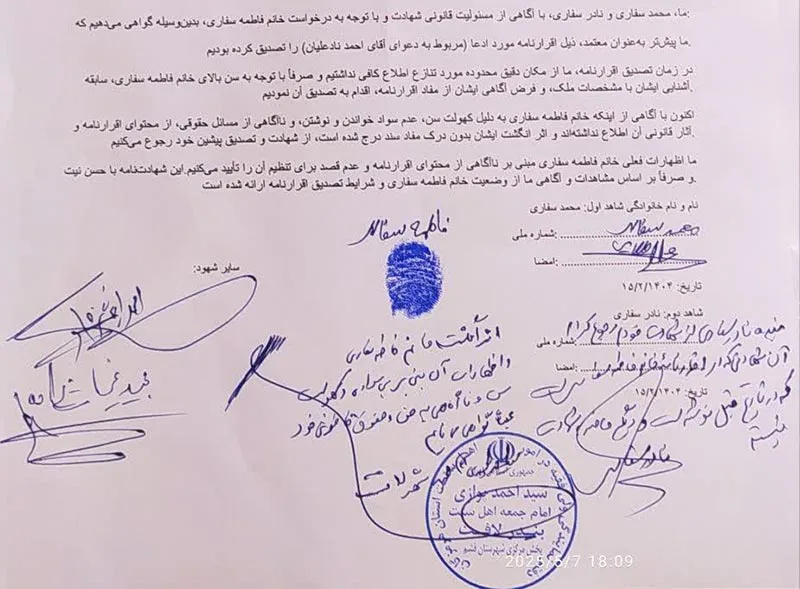 ما، محمد سفاری و نادر سفاری، با آگاهی از مسئولیت قانونی شهادت و با توجه به درخواست خانم فاطمه سفاری، بدین‌وسیله گواهی می‌دهیم که:
ما پیش‌تر به‌عنوان معتمد، ذیل اقرارنامه مورد ادعا (مربوط به دعوای آقای احمد نادعلیان) را تصدیق کرده بودیم.
در زمان تصدیق اقرارنامه، ما از مکان دقیق محدوده مورد تنازع اطلاع کافی نداشتیم و صرفاً با توجه به سن بالای خانم فاطمه سفاری، سابقه
آشنایی ایشان با مشخصات ملک، و فرض آگاهی ایشان از مفاد اقرارنامه، اقدام به تصدیق آن نمودیم.
اکنون با آگاهی از اینکه خانم فاطمه سفاری به دلیل کهولت سن، عدم سواد خواندن و نوشتن، و ناآگاهی از مسائل حقوقی، از محتوای اقرارنامه و
آثار قانونی آن اطلاع نداشته‌اند و اثر انگشت ایشان بدون درک مفاد سند درج شده است، از شهادت و تصدیق پیشین خود رجوع می‌کنیم.
ما اظهارات فعلی خانم فاطمه سفاری مبنی بر ناآگاهی از محتوای اقرارنامه و عدم قصد برای تنظیم آن را تأیید می‌کنیم.این شهادت‌نامه با حسن نیت
و صرفاً بر اساس مشاهدات و آگاهی ما از وضعیت خانم فاطمه سفاری و شرایط تصدیق اقرارنامه ارائه شده است.
نام و نام خانوادگی شاهد اول: محمد سفاری
فاطمه سفاری
محمد سفاری
شماره ملی: ..........
امضا: ..........
سایر شهود:
تاریخ: ۱۵/۲/۱۴۰۴
شاهد دوم: نادر سفاری
شماره ملی
امضا:
تاریخ: ۱۵/۲/۱۴۰۴
اثر انگشت خانم فاطمه سفاری
و اظهارات آن مبنی بر بی‌سوادی و کهولت
سن و ناآگاهی به حق و حقوق قانونی خود
نادر سفاری
جمهوری اسلامی
سید احمد بوازی
امام جمعه اهل سنت
بندر لافت
بخش مرکزی شهرستان قشم
2025/6/7 18:09